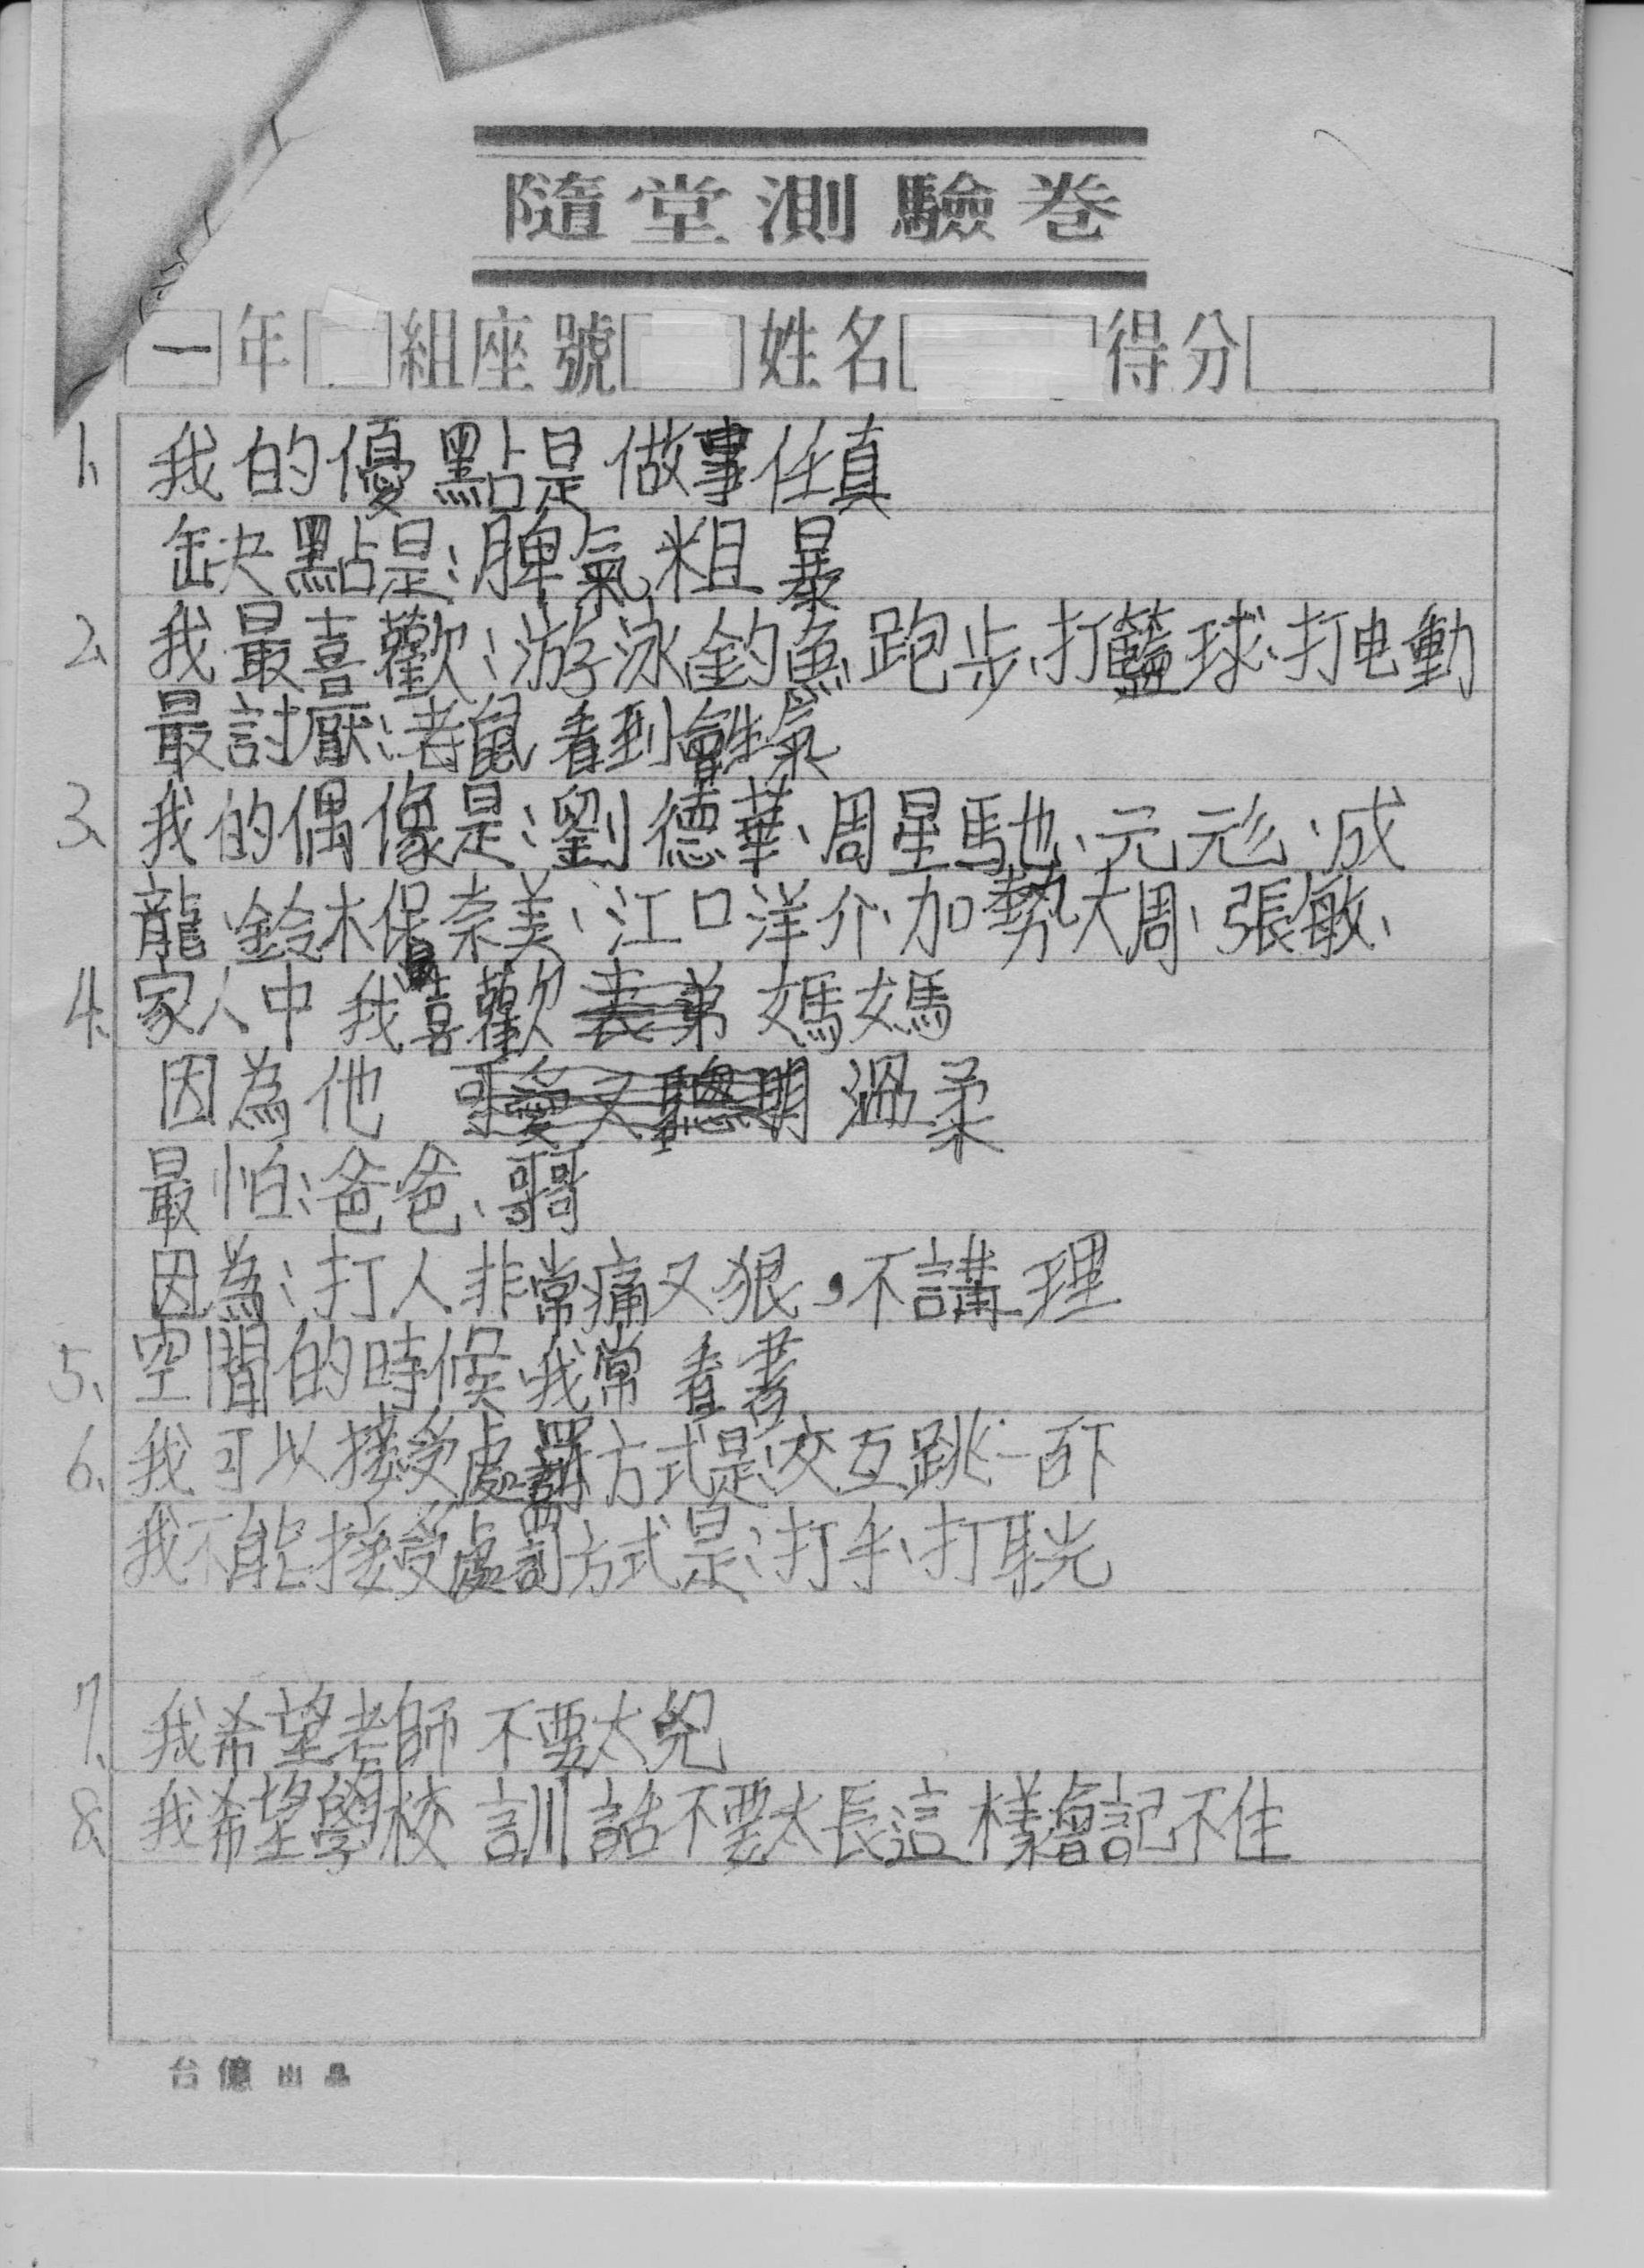 隨堂測驗卷
一年 組座號 姓名 得分
1、我的優點是做事任真
缺點是:脾氣粗暴
2、我最喜歡:游泳釣魚、跑步、打籃球、打电動
最討厭:老鼠看到會生氣
3、我的偶像是:劉德華、周星馳、元元彪、成
龍、鈴木保奈美、江口洋介、加勢大周、張敏、
4、家人中我最喜歡表弟媽媽
因為他可愛又聰明溫柔
最怕:爸爸、哥哥
因為:打人非常痛又狠,不講理
5、空閒的時候我常看書
6、我可以接受處罰方式是:交互跳一百下
我不能接受處罰方式是:打手、打耳光
7、我希望老師不要太兇
8、我希望學校訓話不要太長這樣會記不住
台億出品